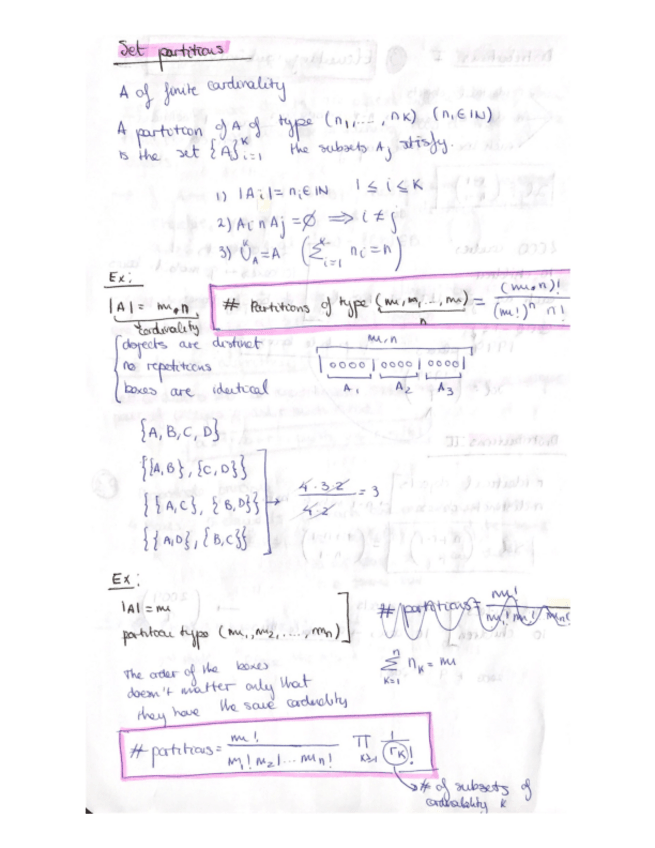 Set partitions
A of finite cardinality
A partition of A of type (n₁,..., nK) (nᵢ ∈ ℕ)
is the set {A}ᴷᵢ₌₁ the subsets Aj satisfy.
1) |Aᵢ| = nᵢ ∈ ℕ 1 ≤ i ≤ K
2) Aᵢ ∩ Aj = ∅ ⟹ i ≠ j
3) ∪ᴷ_A = A (∑ᴷᵢ₌₁ nᵢ = n)
Ex:
|A| = m.n # Partitions of type (m, m, ..., m) = (m.n)! / (m!)ⁿ n!
cardinality n
objects are distinct m.n
no repetitions |oooo|oooo|oooo|
boxes are identical A₁ A₂ A₃
{A, B, C, D}
{{A, B}, {C, D}}
{{A, C}, {B, D}} → 4·3·2 / 4·2 = 3
{{A, D}, {B, C}}
Ex:
|A| = m # partitions = m! / m₁! m₂! ... mn!
partition type (m₁, m₂, ..., mn)
∑ⁿ_K=1 nK = m
The order of the boxes
doesn't matter only that
they have the same cardinality
# partitions = m! / m₁! m₂! ... mn! ∏_K≥1 1 / rK!
→ # of subsets of
cardinality K